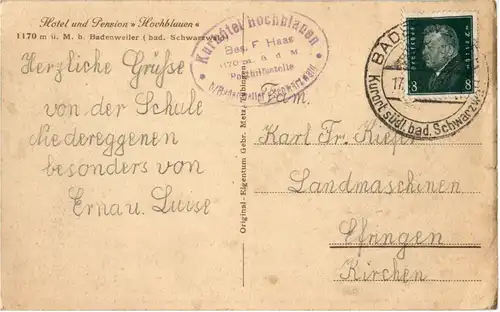 Hotel und Pension »Hochblauen«
1170 m ü. M. b. Badenweiler (bad. Schwarzwald)
Herzliche Grüße
von der Schule
Niedereggenen
besonders von
Erna u. Luise
Original-Eigentum Gebr. Metz, Tübingen
Kurhotel Hochblauen
Bes. F. Haas
1170 m ü. d. M.
Posthilfsstelle
Deutsches Reich
8 8
BADE
17.
Kurort südl. bad. Schwarzw
Fam.
Karl Fr. Kiefer
Landmaschinen
Efringen
Kirchen